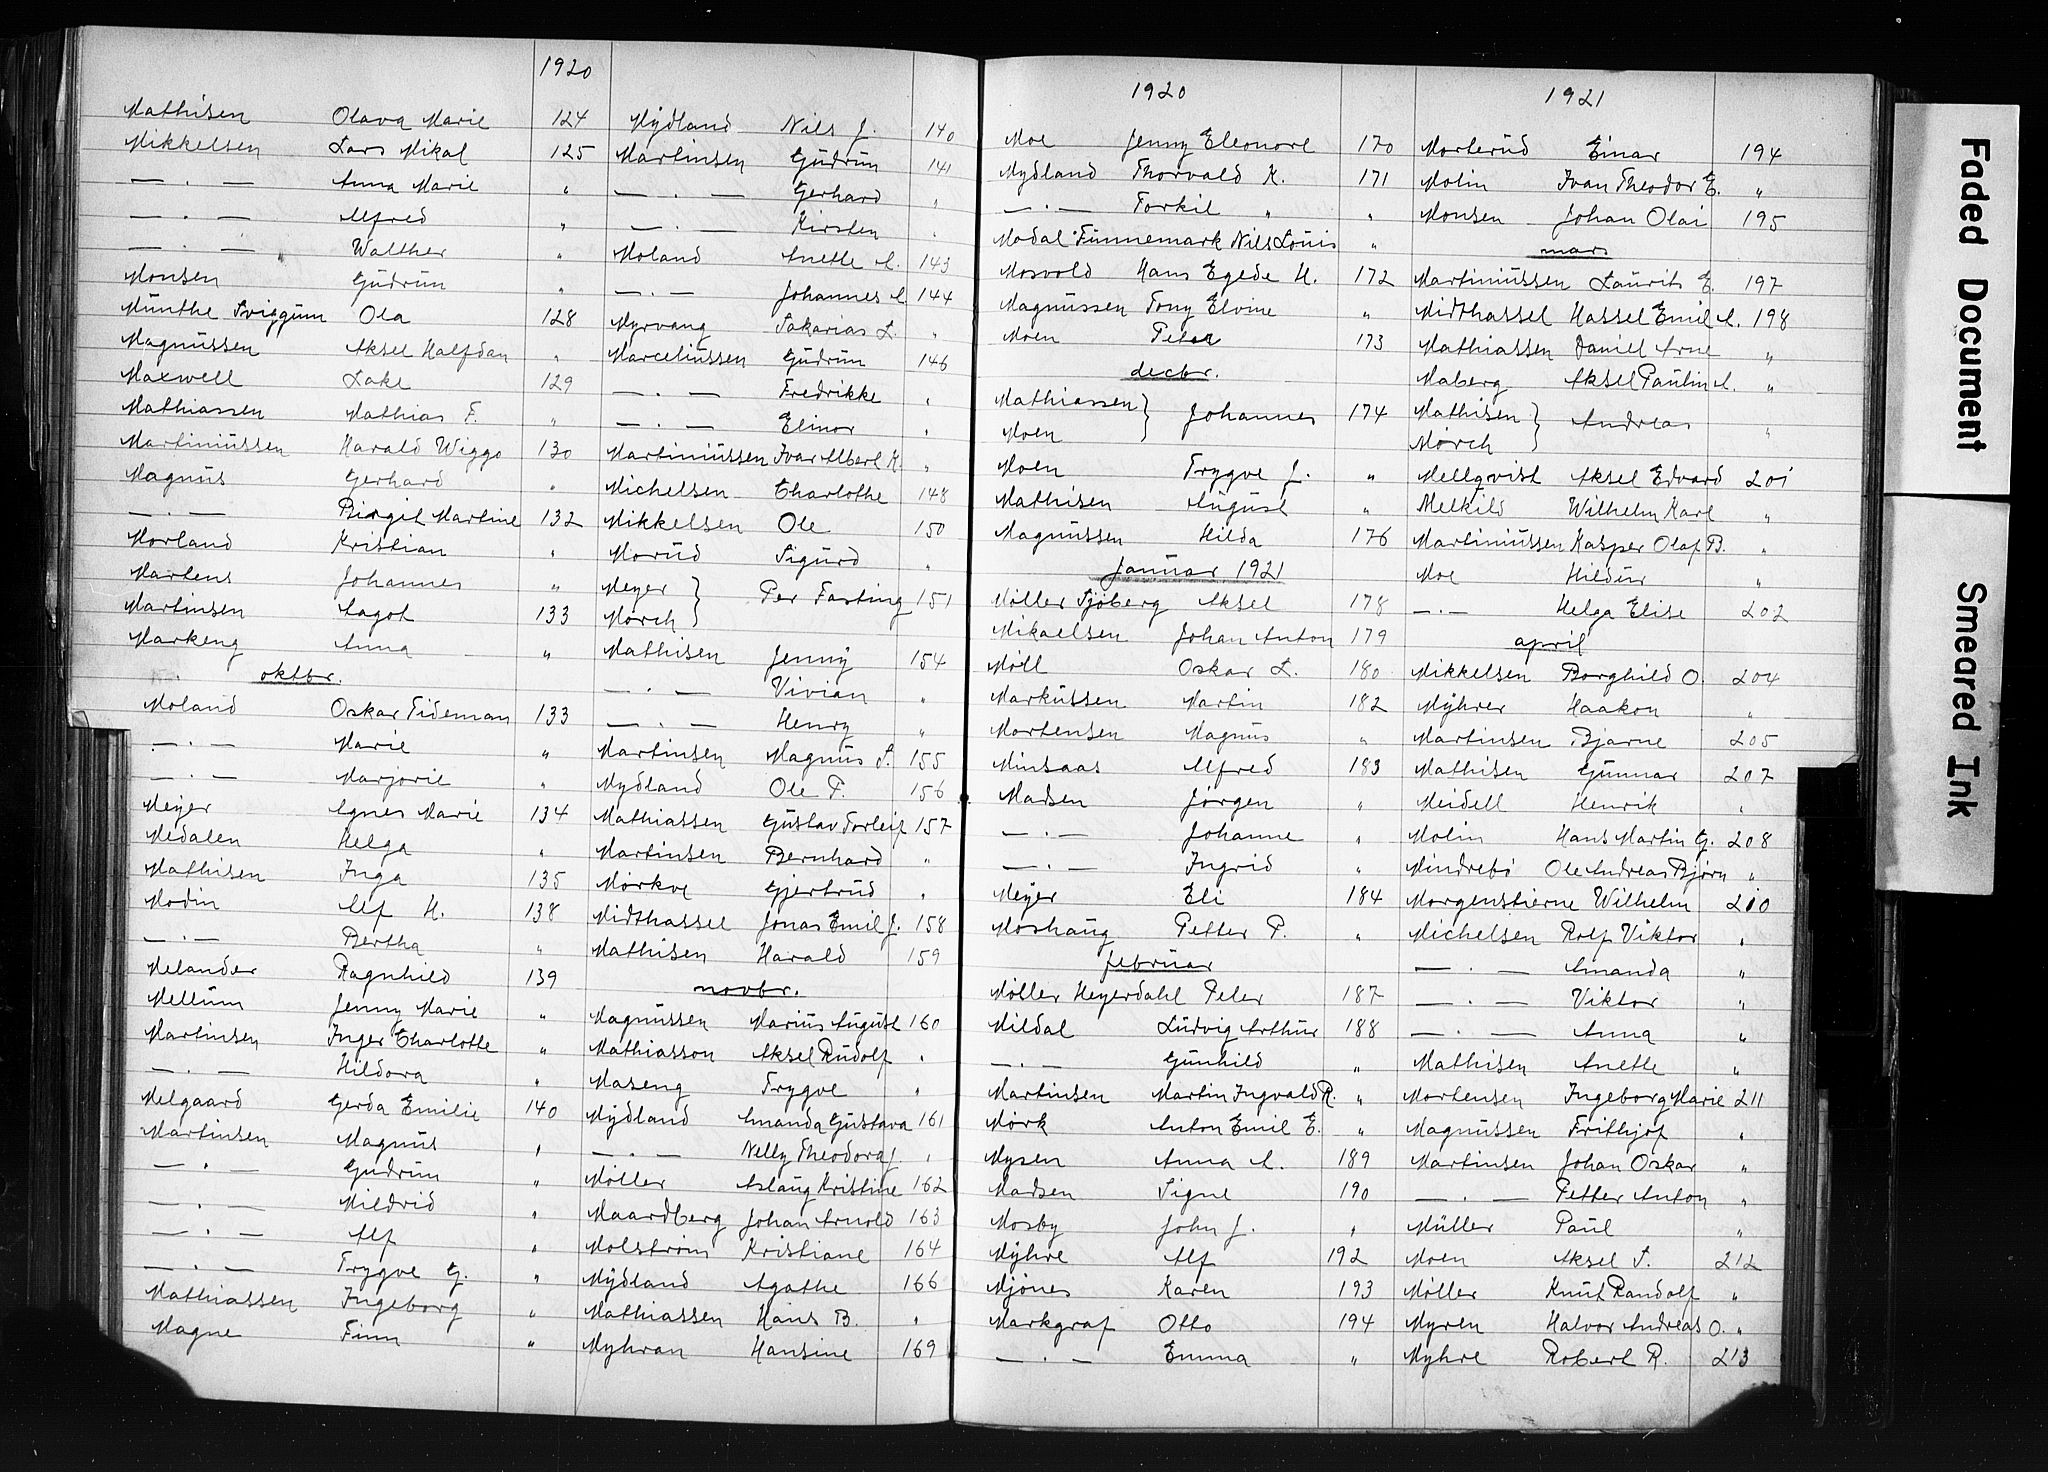 1920
Mathisen Olava Marie 124
Mikkelsen Lars Mikal 125
— . — Anna Marie "
— . — Alfred "
— . — Walther "
Monsen Gudrun "
Munthe Sviggum Ola 128
Magnussen Aksel Halfdan "
Maxwell Lake 129
Mathiassen Mathias F. "
Martiniussen Harald Wiggo 130
Magnus Gerhard "
— . — Birgit Martine 132
Morland Kristian "
Martens Johannes "
Martinsen Aagot 133
Markeng Anna "
oktbr.
Moland Oskar Tideman 133
— . — Marie "
— . — Marjorie "
Meyer Agnes Marie 134
Medalen Helga "
Mathisen Inga 135
Modin Alf H. 138
— . — Bertha "
Melander Ragnhild 139
Mellum Jenny Marie "
Martinsen Inger Charlotte "
— . — Hildora "
Melgaard Gerda Emilie 140
Martinsen Magnus "
— . — Gudrun "
— . — Mildrid "
— . — Alf "
— . — Trygve G. "
Mathiassen Ingeborg "
Magne Finn "
Mydland Nils J. 140
Martinsen Gudrun 141
— . — Gerhard "
— . — Kirsten "
Moland Anette A. 143
— . — Johannes A. 144
Myrvang Sakarias L. "
Marceliussen Gudrun 146
— . — Fredrikke "
— . — Elinor "
Martiniussen Ivar Albert K. "
Michelsen Charlothe 148
Mikkelsen Ole 150
Morud Sigurd "
Meyer } Per Fasting 151
Mørch }
Mathisen Jenny 154
— . — Vivian "
— . — Henry "
Martinsen Magnus S. 155
Mydland Ole P. 156
Mathiassen Gustav Torleif 157
Martinsen Bernhard "
Mørkve Gjertrud "
Midthassel Jonas Emil J. 158
Mathisen Harald 159
novbr.
Magnussen Marius August 160
Mathiasson Aksel Rudolf "
Maseng Trygve "
Mydland Amanda Gustava 161
— . — Nelly Theodora J. "
Møller Aslaug Kristine 162
Maardberg Johan Arnold 163
Molstrøm Kristiane 164
Mydland Agathe 166
Mathiassen Hans B. "
Myhran Hansine 169
1920
Moe Jenny Eleonore 170
Mydland Thorvald K. 171
— . — Torkil " "
Modal Finnemark Nils Louis "
Mosvold Hans Egede H. 172
Magnussen Tony Elvine "
Moen Peter 173
decbr.
Mathiassen } Johannes 174
Moen }
Moen Trygve J. "
Mathisen August "
Magnussen Hilda 176
Januar 1921
Møller Sjøberg Aksel 178
Mikaelsen Johan Anton 179
Møll Oskar L. 180
Markussen Martin 182
Mortensen Magnus "
Minsaas Alfred 183
Madsen Jørgen "
— . — Johanne "
— . — Ingrid "
Meyer Eli 184
Moshaug Petter P. "
februar
Møller Heyerdahl Peter 187
Mildal Ludvig Arthur 188
— . — Gunhild "
Martinsen Martin Ingvald R. "
Mørk Anton Emil E. "
Mysen Anna A. 189
Madsen Signe 190
Mosby John J. "
Myhre Alf 192
Mjønes Karen 193
Markgraf Otto 194
— . — Emma "
1921
Morterud Einar 194
Molin Ivan Theodor E. "
Monsen Johan Olai 195
mars
Martiniussen Laurits E. 197
Midthassel Hassel Emil A. 198
Mathiassen Daniel Arne "
Maberg Aksel Paulin A. "
Mathisen } Andreas "
Mørch }
Mellqvist Aksel Edvard 201
Melkild Wilhelm Karl "
Martiniussen Kasper Olaf B. "
Moe Hildur "
— . — Helga Elise 202
april
Mikkelsen Borghild O. 204
Myhrer Haakon "
Martinsen Bjarne 205
Mathisen Gunnar 207
Meidell Henrik "
Molin Hans Martin G. 208
Mindrebø Ole Andreas Bjørn "
Morgenstierne Wilhelm 210
Michelsen Rolf Viktor "
— . — Amanda "
— . — Viktor "
— . — Anna "
Mathisen Anette "
Mortensen Ingeborg Marie 211
Magnussen Frithjof "
Martinsen Johan Oskar "
— . — Petter Anton "
Müller Paul "
Moen Aksel S. 212
Møller Knut Randolf "
Myren Halvor Andreas O. "
Myhre Robert R. 213
Faded Document
Smeared Ink